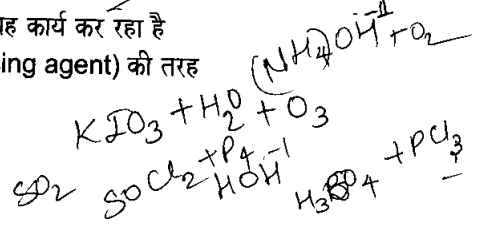 यह कार्य कर रहा है
ing agent) की तरह
(NH4)OH + O2
KIO3 + H2O + O3
SO2
SOCl2 + P4
HOH
+ PCl3